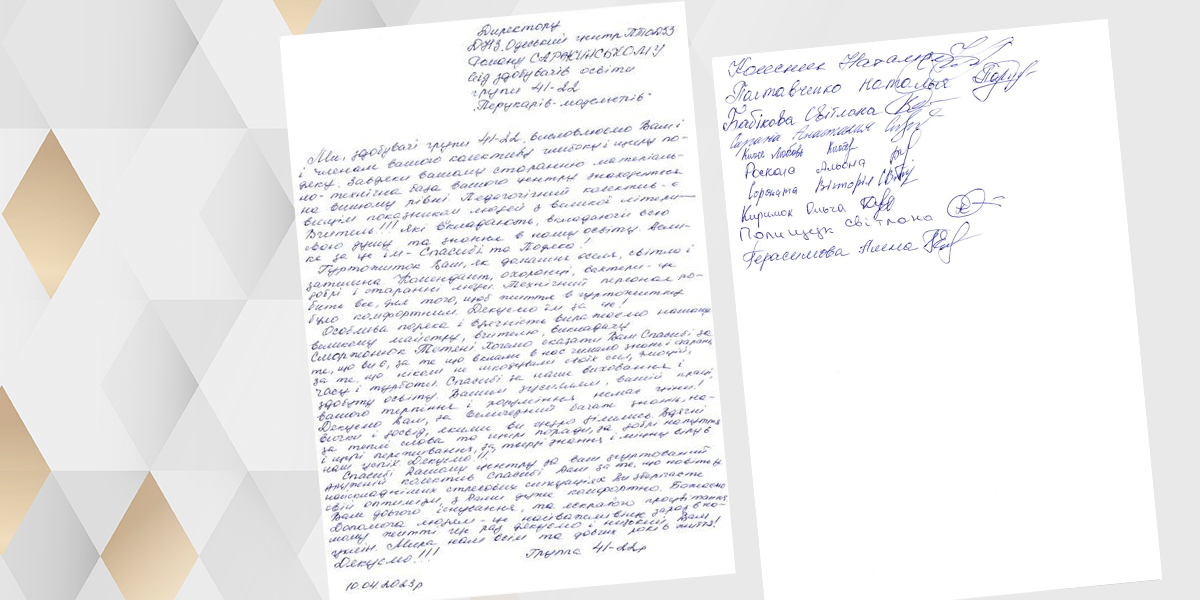 Директору
ДНЗ "Одеський центр ПТО ДСЗ"
Роману САРЖИНСЬКОМУ
від здобувачів освіти
групи 41-22
"Перукарів-модельєрів"
Ми, здобувачі групи 41-22, висловлюємо Вам і
і членам вашого колективу глибоку і щиру по-
дяку. Завдяки вашому старанню матеріаль-
но-технічна база вашого центру знаходиться
на вищому рівні. Педагогічний колектив - є
вищім показником людей з великої літери -
Вчитель!!! Які вкладають, вкладають всю
свою душу та знання в нашу освіту. Вели-
ке за це їм - Спасибі та Подяка!
Гуртожиток Ваш, як домашня оселя, світло і
затишна. Комендант, охоронці, вахтери - це
добрі і старанні люди. Технічний персонал ро-
бить все, для того, щоб життя в гуртожитку
було комфортним. Дякуємо їм за це!
Особлива подяка і вдячність виражаємо нашому
великому майстру, вчителю, викладачу
Сморжонюк Тетяні. Хочемо сказати Вам Спасибі за
те, що ви є, за те що вклали в нас чимало знань і старань
за те, що ніколи не шкодували своїх сил, емоцій,
часу і турботи. Спасибі за наше виховання і
здобуту освіту. Вашим зусиллям, вашій праці,
вашого терпіння і розуміння немає ціни!
Дякуємо Вам, за величезний багаж знань, на-
вички і досвід, якими ви щедро ділились. Вдячні
за теплі слова та щирі поради, за добрі напуття
і щирі переживання, за тверді знання і міцну віру в
наш успіх. Дякуємо!!!
Спасибі Вашому центру за ваш згуртований
дружній колектив. Спасибі Вам за те, що навіть у
найскладніших стресових ситуаціях Ви зберігаєте
свій оптимізм, з Вами дуже комфортно. Бажаємо
Вам довгого існування, та яскравого процвітання
Допомога людям - це найважливіше зараз в на-
шому житті. Ще раз дякуємо і низький Вам
уклін. Мира нам всім та довгих років життя!
Дякуємо!!!
Группа 41-22р
10.04.2023р
Колесник Наталія
Полтавченко Наталья
Бабікова Світлана
Анастасия
Любовь
Роскола Альона
Вікторія
Киримок Ольга
Полищук світлана
Герасимова Алена